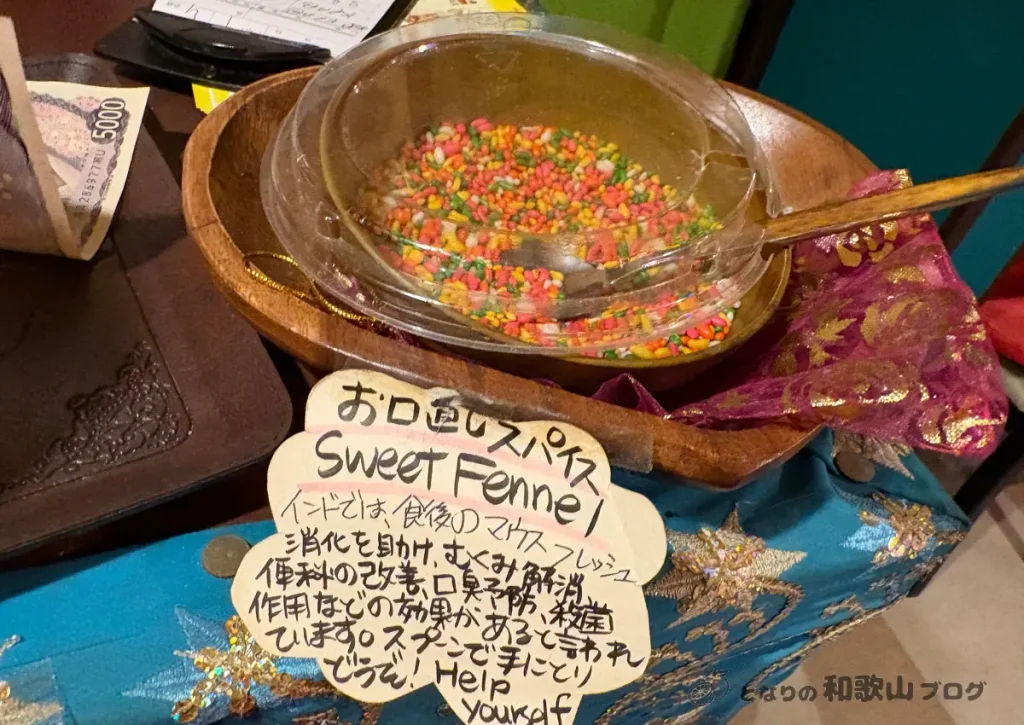 5000
お口直しスパイス
Sweet Fennel
インドでは、食後のマウスフレッシュ
消化を助け、むくみ解消、
便秘の改善、口臭予防、殺菌
作用などの効果が、あると言われ
ています。スプーンで手にとり
どうぞ! Help
yourself
となりの和歌山ブログ